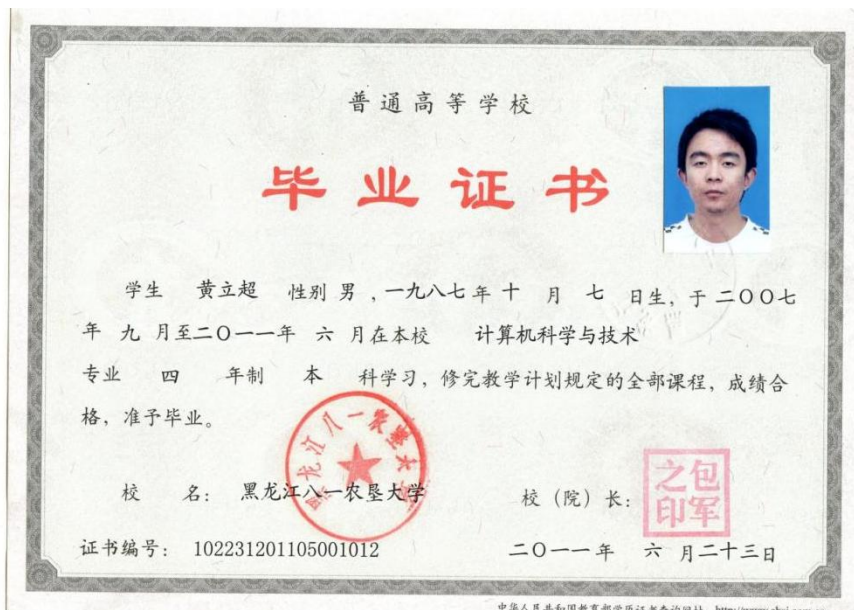 普通高等学校
毕业证书
学生 黄立超 性别 男 ，一九八七年 十 月 七 日生，于 二〇〇七
年 九 月至二〇一一年 六 月在本校 计算机科学与技术
专业 四 年制 本 科学习，修完教学计划规定的全部课程，成绩合
格，准予毕业。
黑龙江八一农垦大学
校 名： 黑龙江八一农垦大学
校（院）长：
包军之印
证书编号： 102231201105001012
二〇一一年 六 月二十三日
中华人民共和国教育部学历证书查询网址